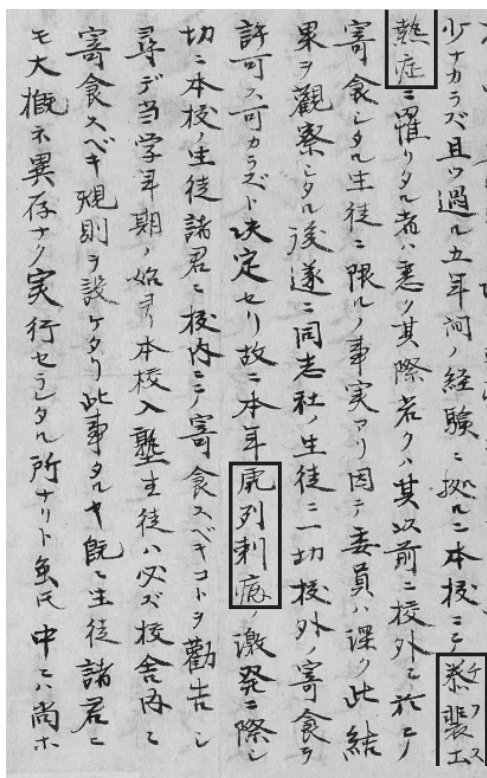 少ナカラズ且ツ過ル五年間ノ経験ニ拠ルニ本校ニテ
熱症ニ罹リタル者ハ悉ク其際若クハ其以前ニ校外ニ於テ
寄食シタル生徒ニ限ルノ事実アリ因テ委員ハ深ク此結
果ヲ觀察シタル後遂ニ同志社ノ生徒ニ一切校外ノ寄食ヲ
許可ス可カラズト決定セリ故ニ本年虎列剌病ノ激発ニ際シ
切ニ本校ノ生徒諸君ニ校内ニテ寄食スベキコトヲ勸告シ
尋デ当学年期ノ始ヨリ本校入塾生徒ハ必ズ校舎内ニ
寄食スベキ規則ヲ設ケタリ此事タルヤ既ニ生徒諸君ニ
モ大概ネ異存ナク実行セラレタル所ナリト虽氏中ニハ尚ホ